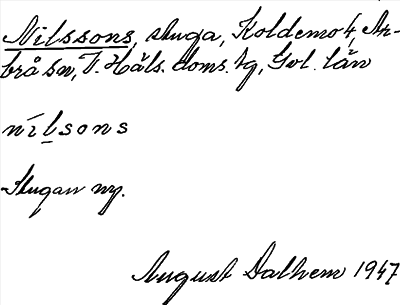 Nilssons, stuga, Koldemo 4, Ar-
brå sn, V. Häls. doms. tg, Gvl. län
nílsons
Stugan ny.
August Dalhem 1947